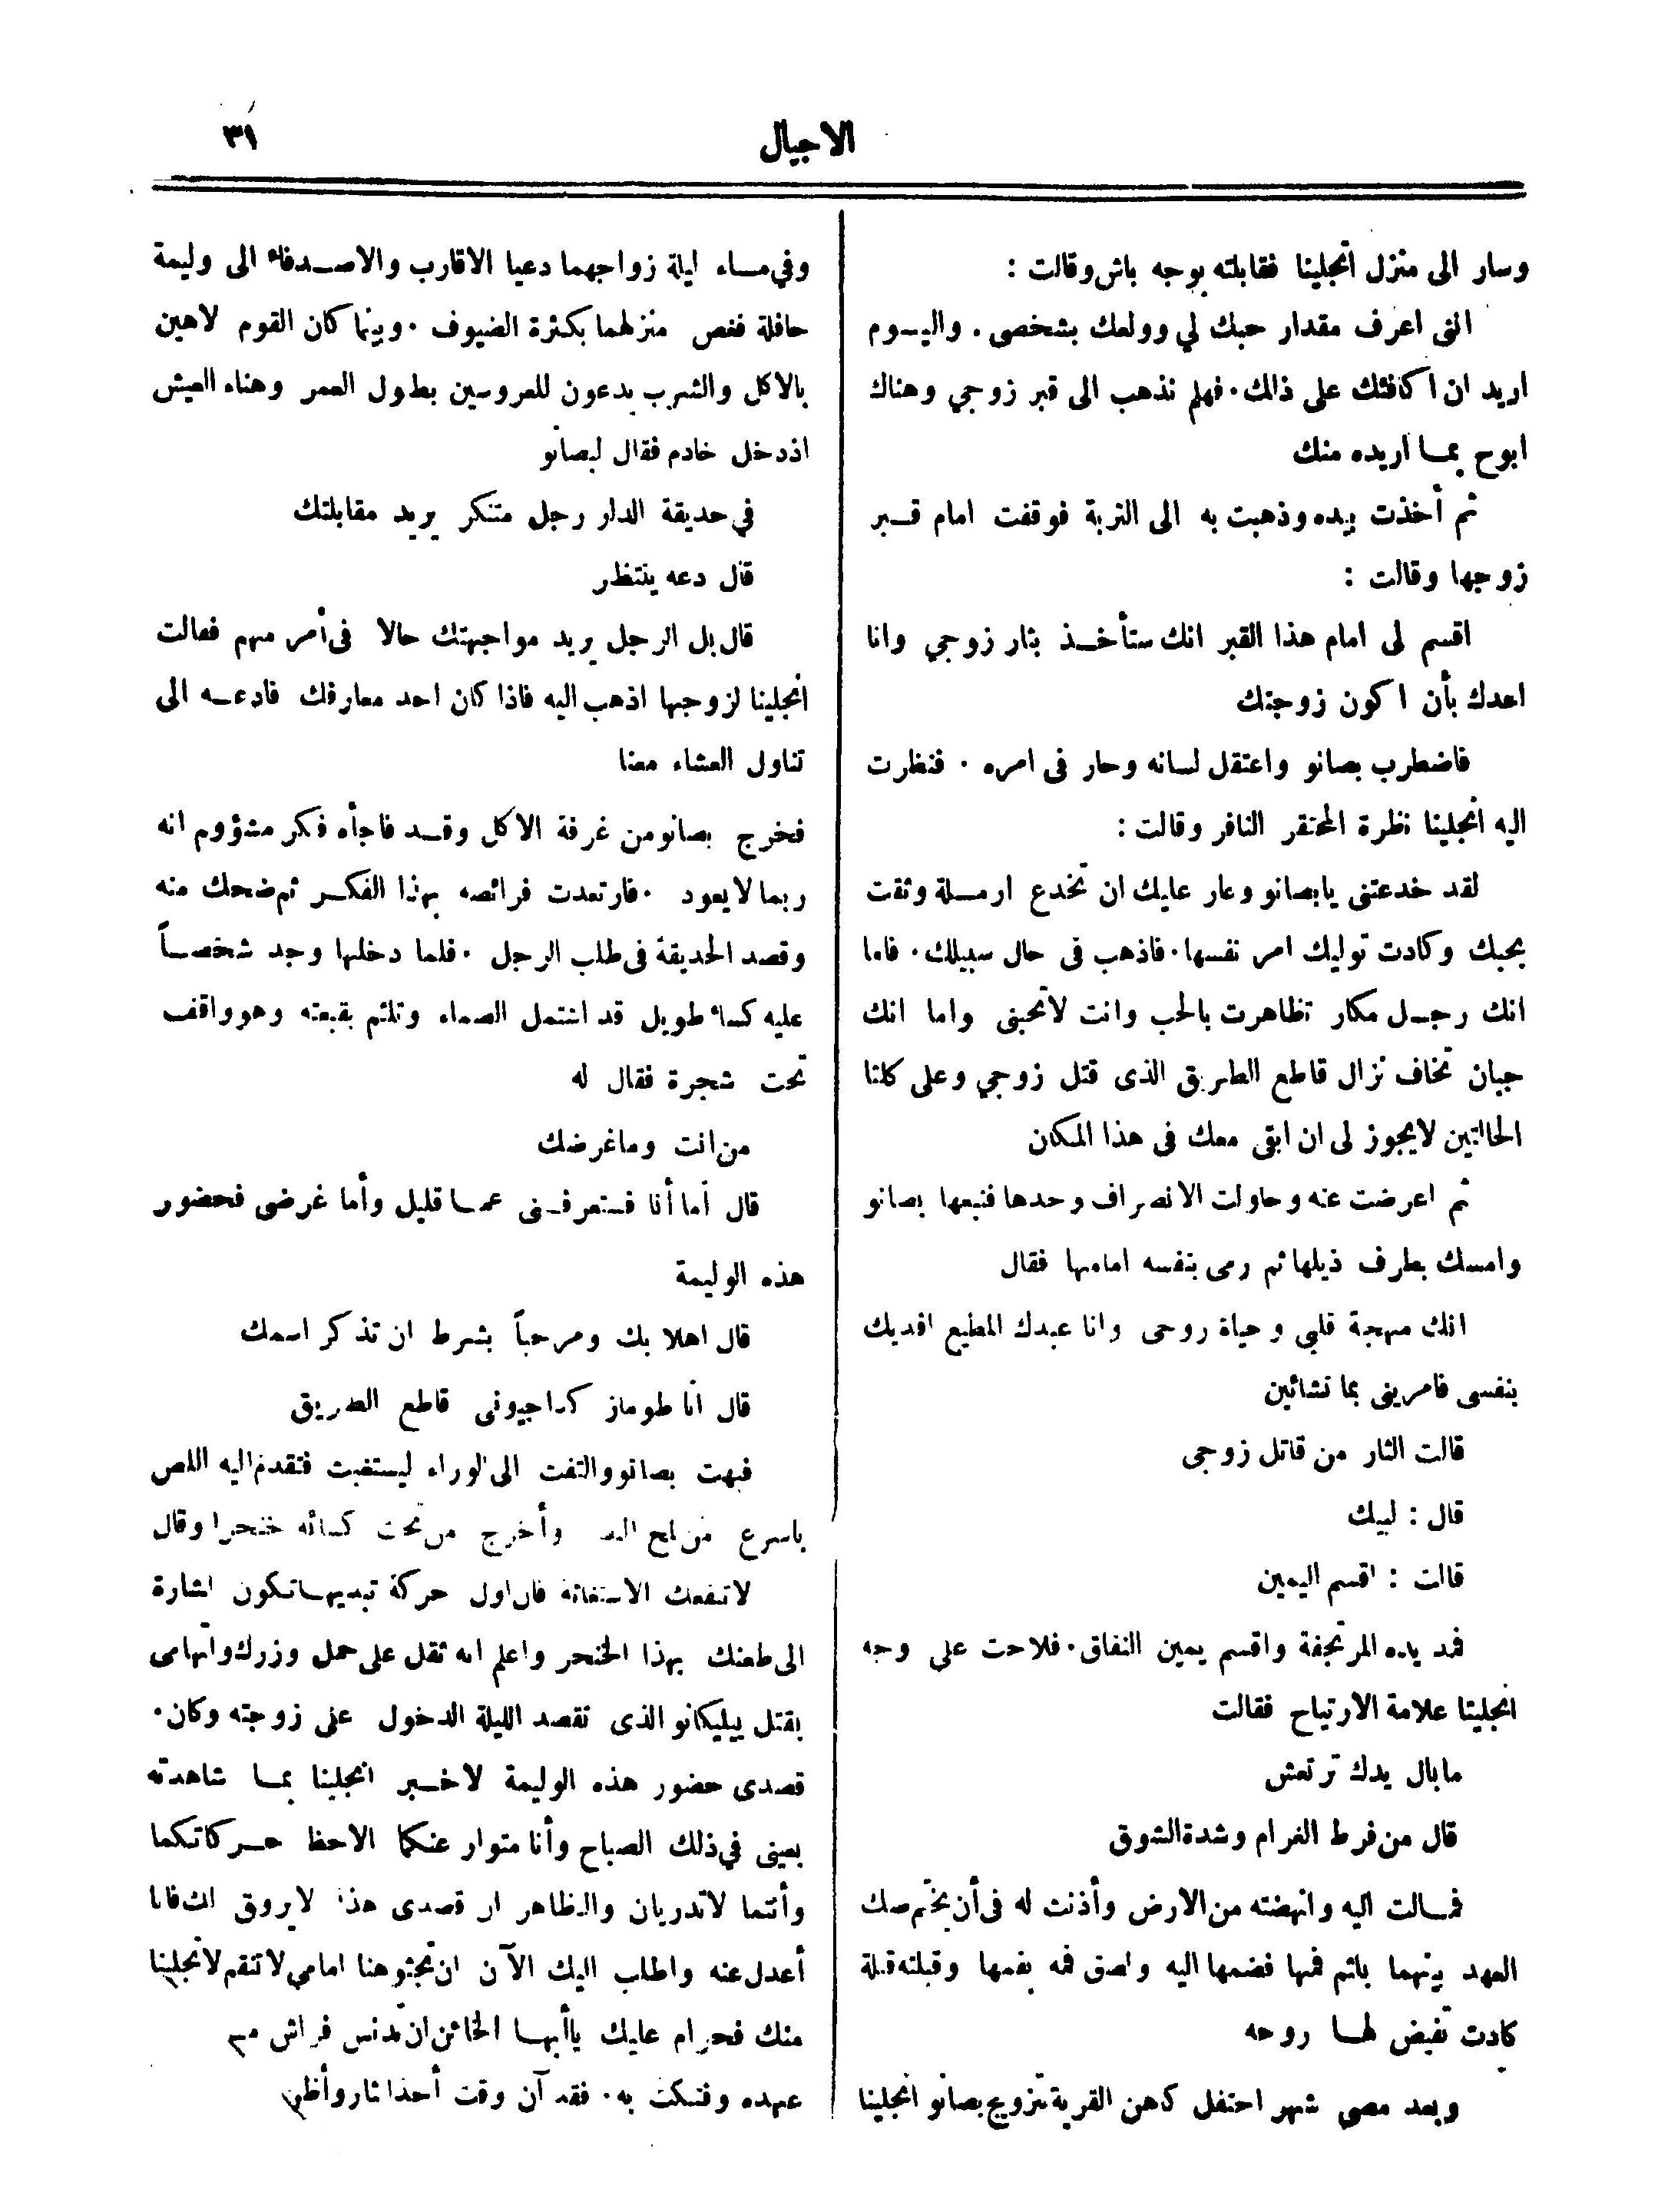 الاجيال
٣١
وسار الى منزل انجلينا فقابلته بوجه باش وقالت :
اننى اعرف مقدار حبك لي وولعك بشخصى . واليوم
اريد ان اكافئك على ذالك . فهلم نذهب الى قبر زوجي وهناك
ابوح بما اريده منك
ثم أخذت بيده وذهبت به الى التربة فوقفت امام قبر
زوجها وقالت :
اقسم لى امام هذا القبر انك ستأخذ بثار زوجي وانا
اعدك بأن اكون زوجتك
فاضطرب بصانو واعتقل لسانه وحار فى امره . فنظرت
اليه انجلينا نظرة المحتقر النافر وقالت :
لقد خدعتنى يا بصانو وعار عليك ان تخدع ارملة وثقت
بحبك وكادت توليك امر نفسها . فاذهب فى حال سبيلك . فاما
انك رجل مكار تظاهرت بالحب وانت لا تحبنى واما انك
جبان تخاف نزال قاطع الطريق الذى قتل زوجي وعلى كلتا
الحالتين لا يجوز لى ان ابقى معك فى هذا المكان
ثم اعرضت عنه وحاولت الانصراف وحدها فتبعها بصانو
وامسك بطرف ذيلها ثم رمى بنفسه امامها فقال
انك مهجة قلبي وحياة روحى وانا عبدك المطيع افديك
بنفسى فامرينى بما تشائين
قالت الثار من قاتل زوجى
قال : لبيك
قالت : اقسم اليمين
فمد يده المرتجفة واقسم يمين النفاق . فلاحت على وجه
انجلينا علامة الارتياح فقالت
ما بال يدك ترتعش
قال من فرط الغرام وشدة الشوق
فمالت اليه وانهضته من الارض وأذنت له فى أن يختم صك
العهد بينهما بلثم فمها فضمها اليه ولصق فمه بفمها وقبلته قبلة
كادت تفيض لها روحه
وبعد مضي شهر احتفل كاهن القرية بتزويج بصانو انجلينا
وفي مساء ليلة زواجهما دعيا الاقارب والاصدقاء الى وليمة
حافلة فغص منزلهما بكثرة الضيوف . وبينما كان القوم لاهين
بالاكل والشرب يدعون للعروسين بطول العمر وهناء العيش
اذ دخل خادم فقال لبصانو
في حديقة الدار رجل متنكر يريد مقابلتك
قال دعه ينتظر
قال بل الرجل يريد مواجهتك حالا فى أمر مهم فقالت
انجلينا لزوجها اذهب اليه فاذا كان احد معارفك فادعه الى
تناول العشاء معنا
فخرج بصانو من غرفة الاكل وقد فاجأه فكر مشؤوم انه
ربما لا يعود . فارتعدت فرائصه بهذا الفكر ثم ضحك منه
وقصد الحديقة فى طلب الرجل . فلما دخلها وجد شخصاً
عليه كساء طويل قد اشتمل الصماء وتلثم بقبعته وهو واقف
تحت شجرة فقال له
من انت وما غرضك
قال أما أنا فستعرفنى عما قليل وأما غرضى فحضور
هذه الوليمة
قال اهلا بك ومرحباً بشرط ان تذكر اسمك
قال انا طوماز كراجيونى قاطع الطريق
فبهت بصانو والتفت الى الوراء ليستغيث فتقدم اليه اللص
باسرع من لمح البصر وأخرج من تحت كسائه خنجرا وقال
لا تنفعك الاستغاثة فان اول حركة تبديها تكون اشارة
الى طعنك بهذا الخنجر واعلم انه ثقل على حمل وزرك واتهامى
بقتل بيليكانو الذى تقصد الليلة الدخول على زوجته وكان .
قصدى حضور هذه الوليمة لاخبر انجلينا بما شاهدته
بعينى في ذلك الصباح وأنا متوار عنكما الاحظ حركاتكما
وأنتما لا تدريان والظاهر ان قصدى هذا لا يروق لك فانا
أعدل عنه واطلب اليك الآن ان تجثو هنا امامي لا تنقم لانجلينا
منك فحرام عليك يا أيها الخائن ان تدنس فراش من
عهده وفتكت به . فقد آن وقت أخذ الثار وأظن